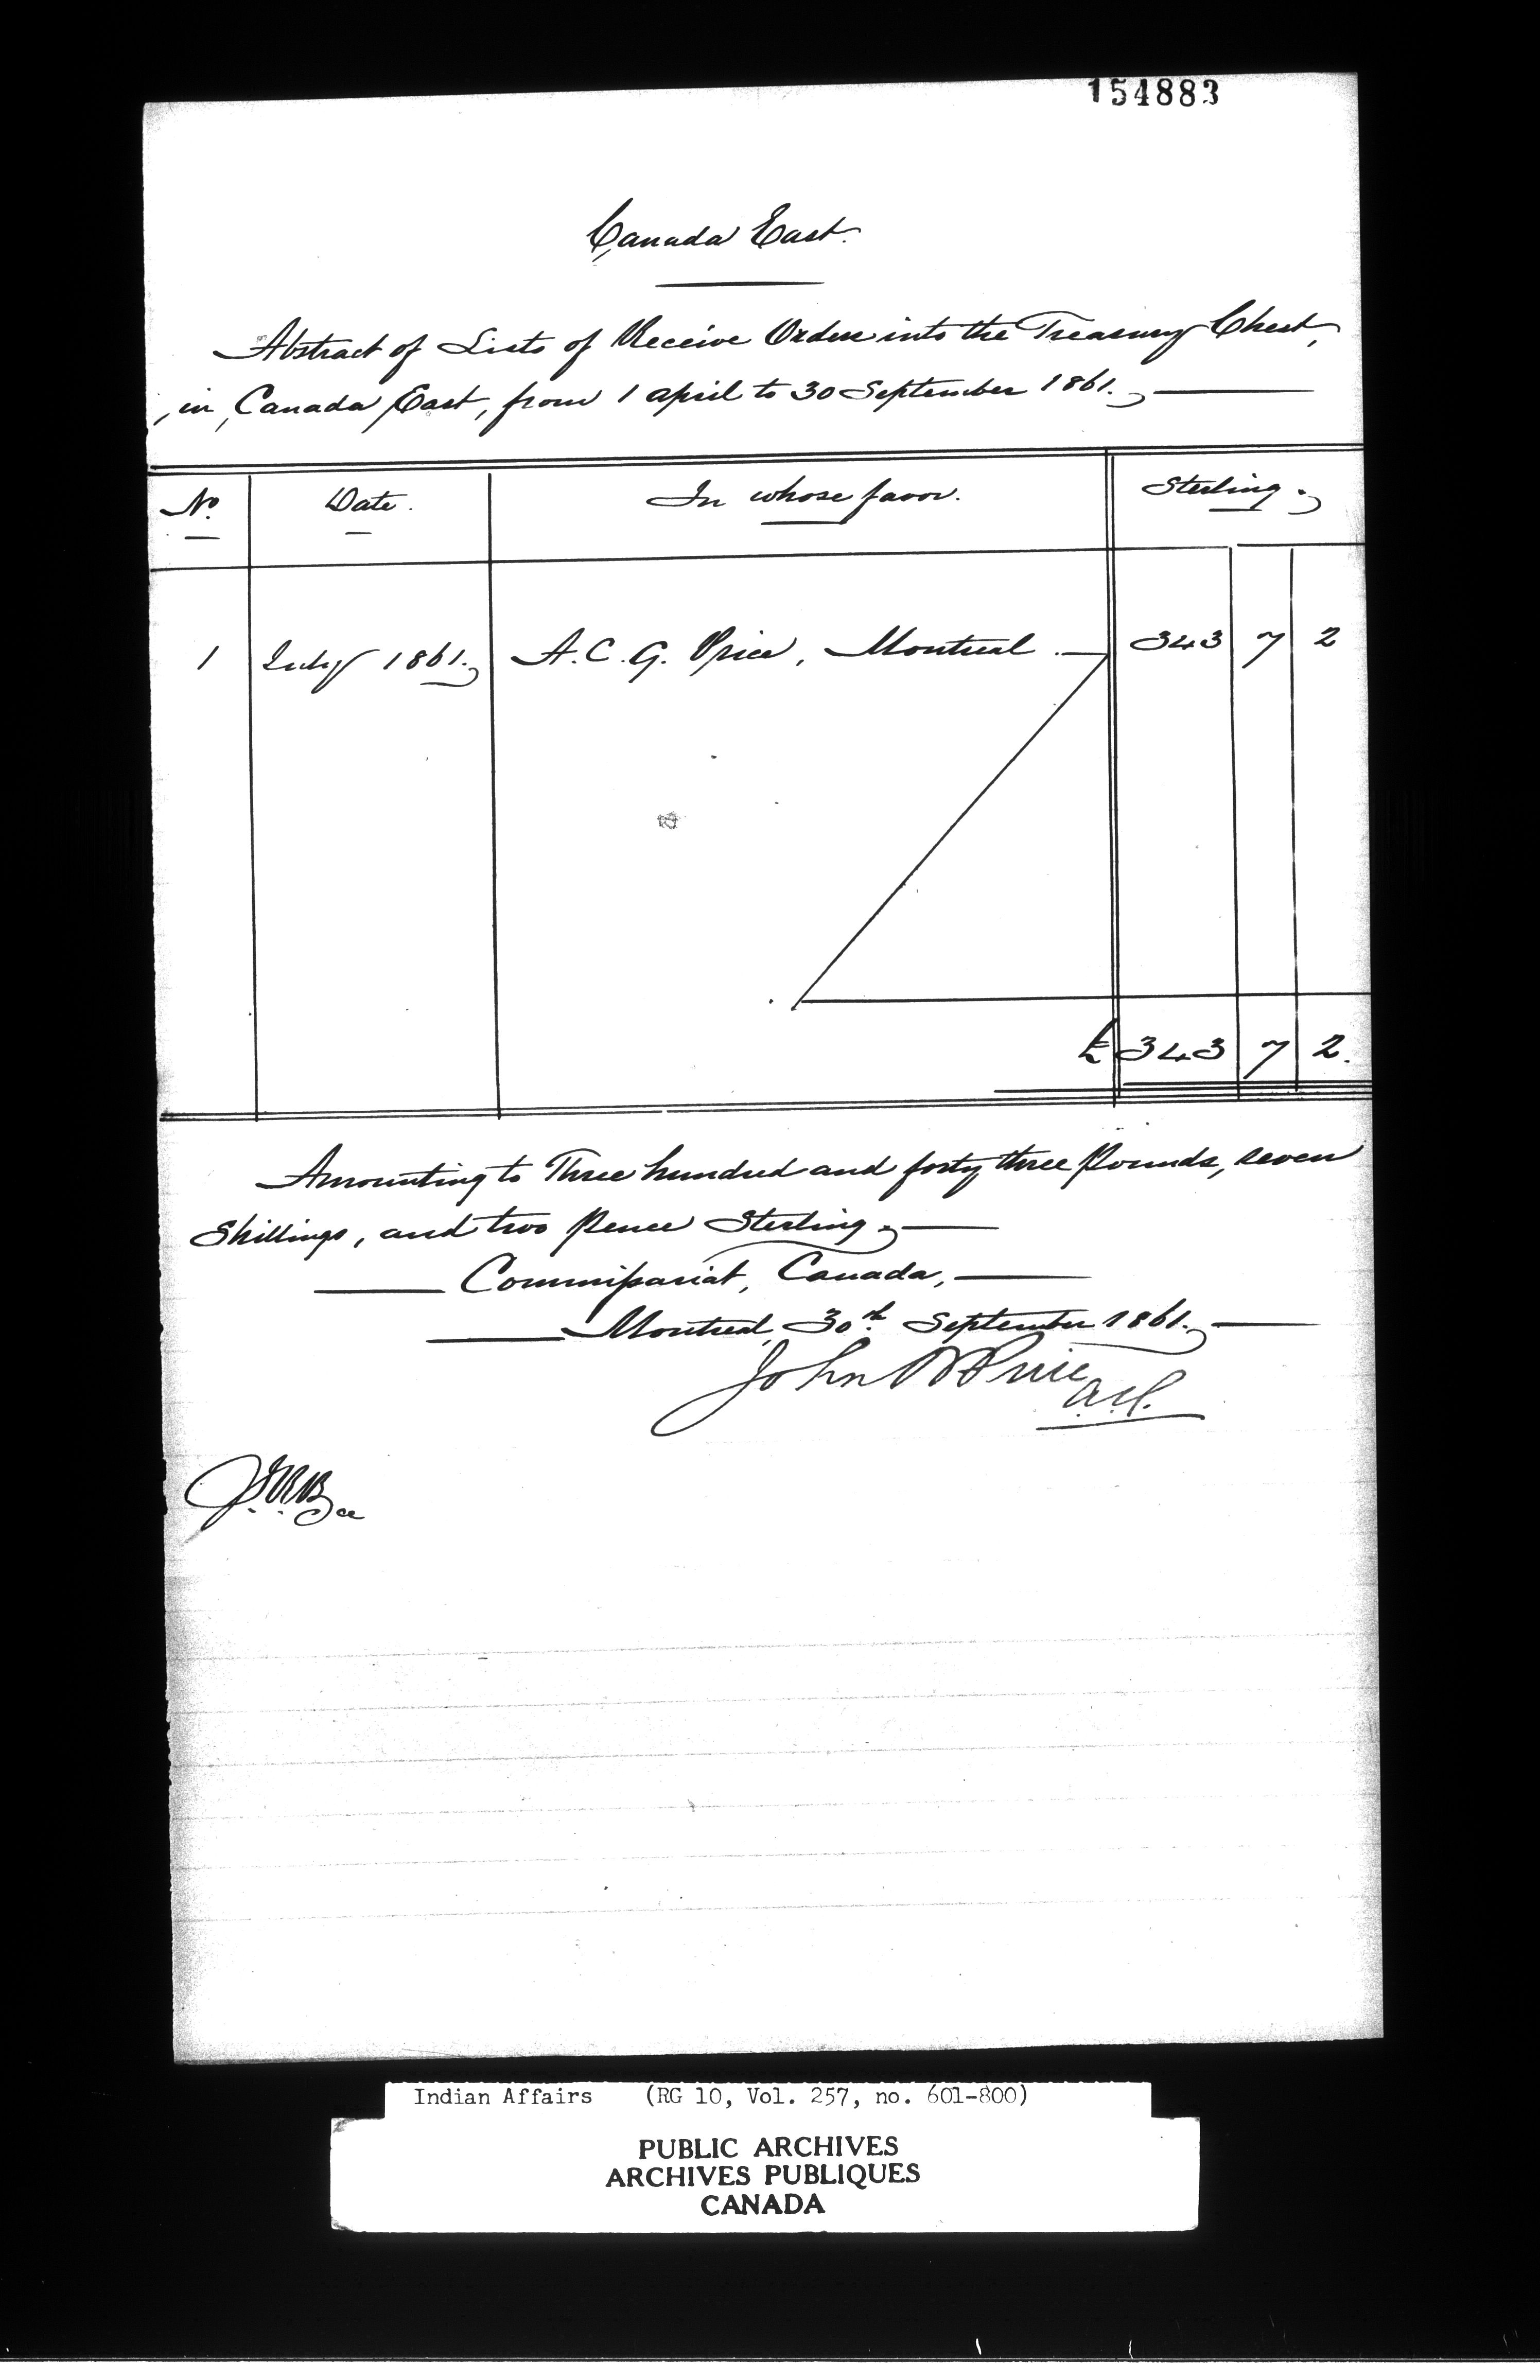 154883
Canada East.
Abstract of Lists of Receive Orders into the Treasury Chest,
in Canada East, from 1 April to 30 September 1861.
No. Date. In whose favor. Sterling.
1 July 1861. A.C.G. Price, Montreal. 343 7 2
£ 343 7 2.
Amounting to Three hundred and forty three Pounds, seven
Shillings, and two Pence Sterling.
Commissariat, Canada,
Montreal, 30th September 1861.
John Price
Indian Affairs (RG 10, Vol. 257, no. 601-800)
PUBLIC ARCHIVES
ARCHIVES PUBLIQUES
CANADA